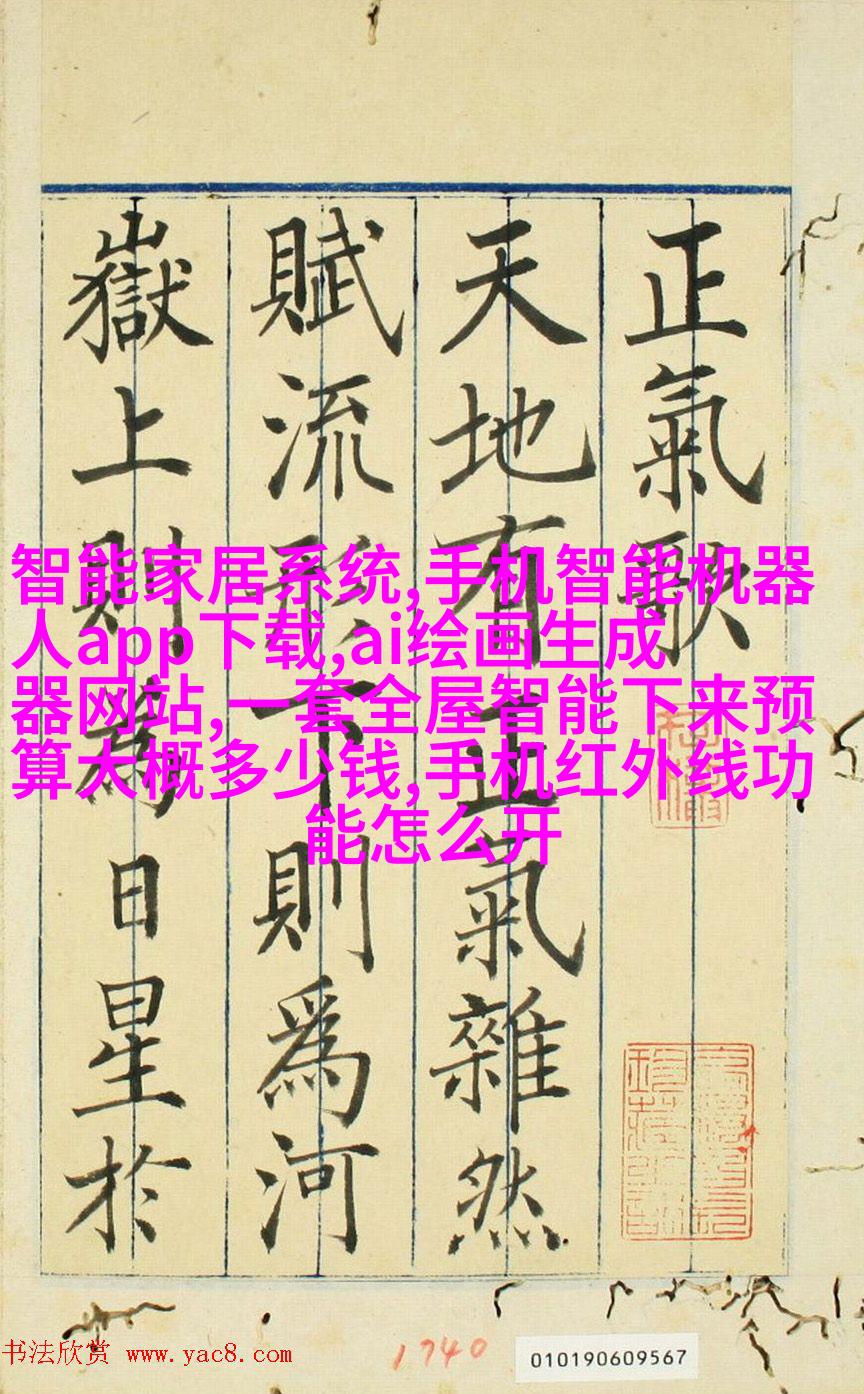 正氣歌
天地有正氣雜然
賦流形下則爲河
嶽上則爲日星於
智能家居系统,手机智能机器
人app下载,ai绘画生成
器网站,一套全屋智能下来预
算大概多少钱,手机红外线功
能怎么开
书法欣赏 www.yac8.com
1740
010190609567